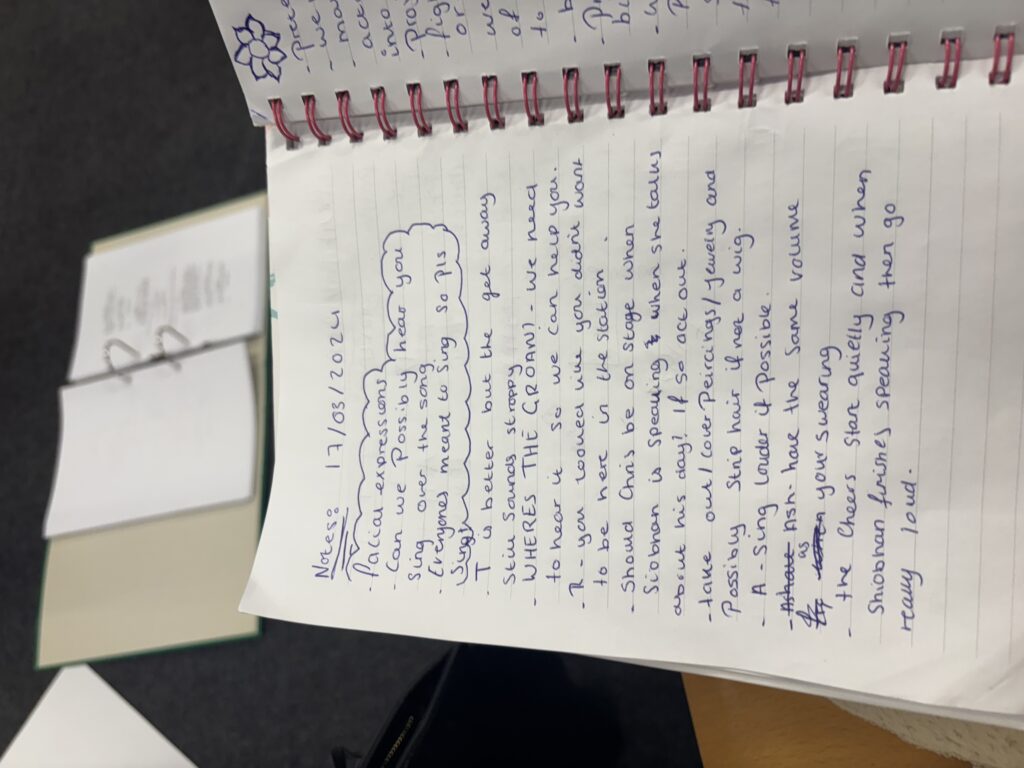 Notes: 17/03/2024
- Facial expressions
- Can we Possibly hear you
Sing over the song
- Everyones meant to Sing so Pls
Sing!
- T is better but the get away
Still Sounds stroppy
- WHERES THE GROAN?- we need
to hear it so we can help you.
- R - you looked like you didn't want
to be here in the station.
- Should Chris be on stage when
Siobhan is speaking & when she talks
about his day? If so act out.
- take out/cover Peircings/jewelry and
Possibly Strip hair if not a wig.
- A - Sing louder if Possible.
- Ash- have the Same volume
as your swearing
- the Cheers Start quietly and when
Shiobhan finishes speaking then go
really loud.